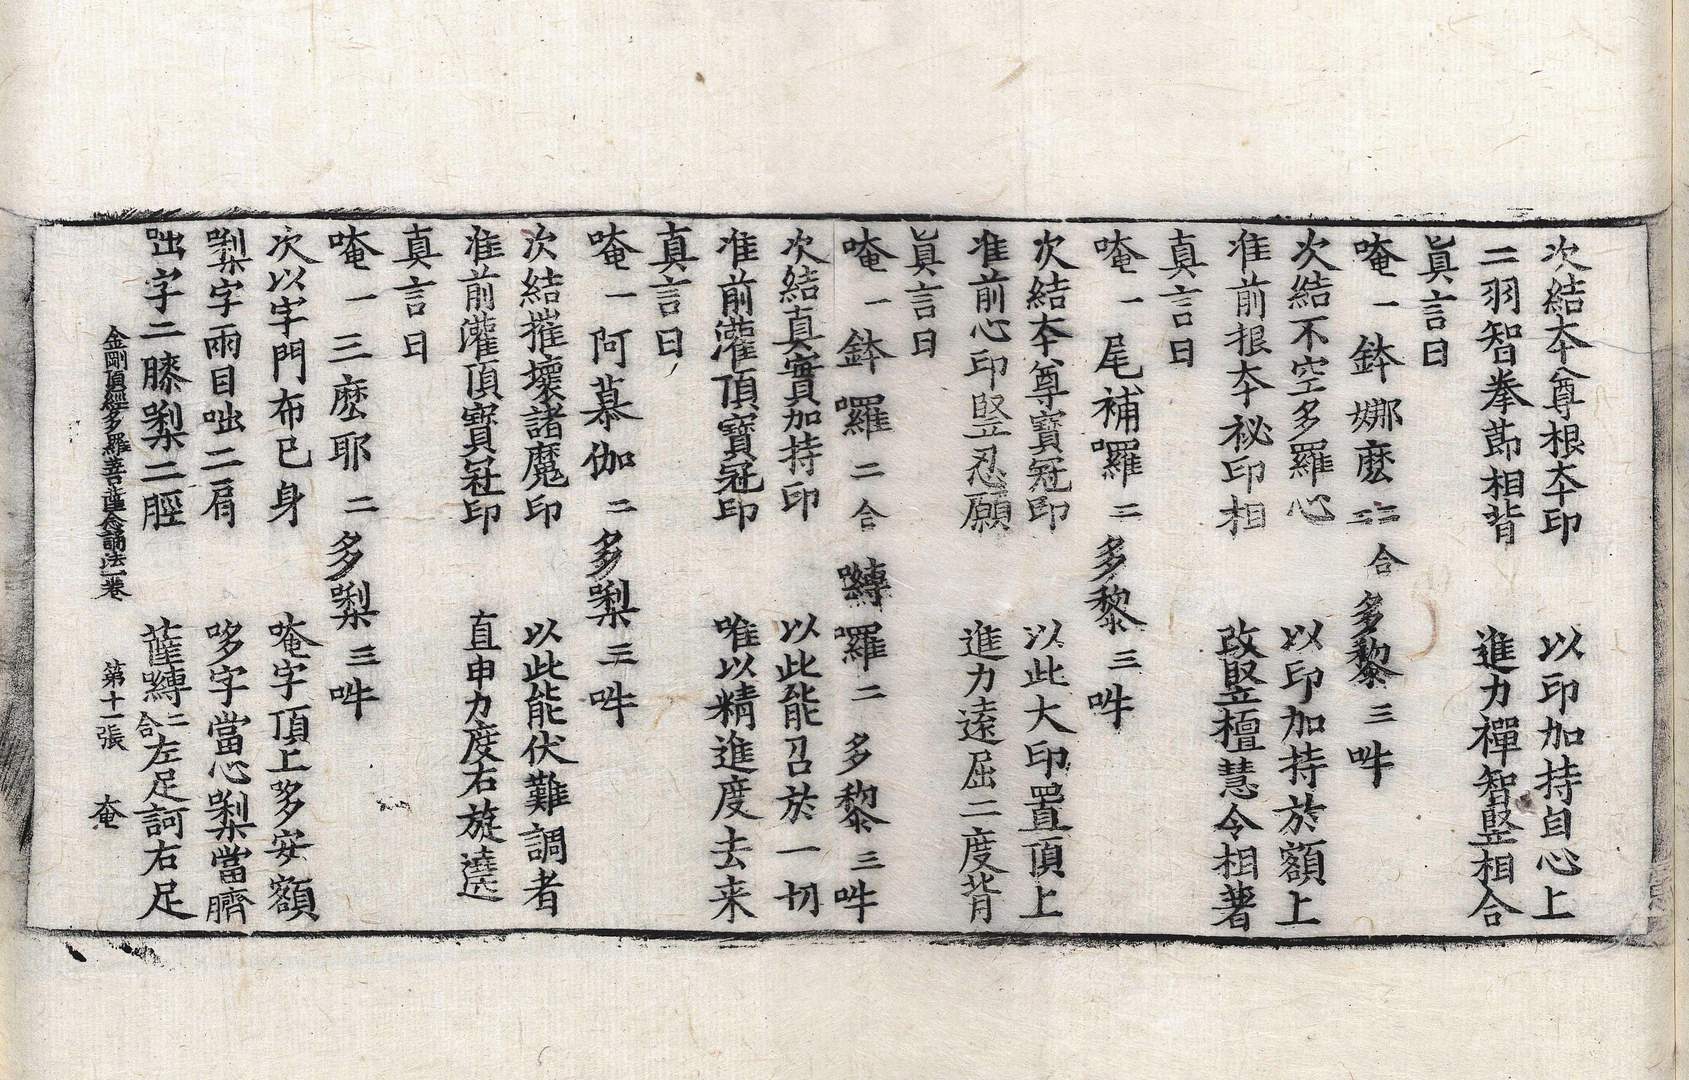 次結本尊根本印　以印加持自心上
二羽智拳節相背　進力禪智竪相合
真言曰
唵一鉢娜麽二合二多黎三吽
次結不空多羅心　以印加持於額上
准前根本秘印相　改竪檀慧令相著
真言曰
唵一尾補囉二多黎三吽
次結本尊寶冠印　以此大印置頂上
准前心印竪忍願　進力遠屈二度背
真言曰
唵一鉢囉二合嚩囉二多黎三吽
次結真實加持印　以此能召於一切
准前灌頂寶冠印　唯以精進度去来
真言曰
唵一阿慕伽二多㘑三吽
次結摧壞諸魔印　以此能伏難調者
准前灌頂寶冠印　直申力度右旋遶
真言曰
唵一三麽耶二多㘑三吽
次以字門布已身　唵字頂上哆安額
㘑字兩目咄二肩　哆字當心㘑當臍
咄字二膝㘑二脛　薩嚩二合左足訶右足
金剛頂經多羅菩薩念誦法一卷　第十一張　奄